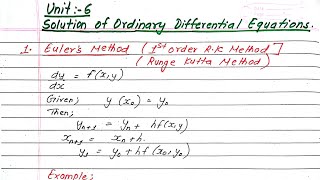 Unit:- 6
Solution of Ordinary Differential Equations.
1. Euler's Method ( 1st order R.K Method ]
( Runge Kutta Method )
dy/dx = f(x,y)
Given; y(x0) = y0
Then;
yn+1 = yn + hf(x,y)
xn+1 = xn + h.
y1 = y0 + hf(x0,y0)
Example;